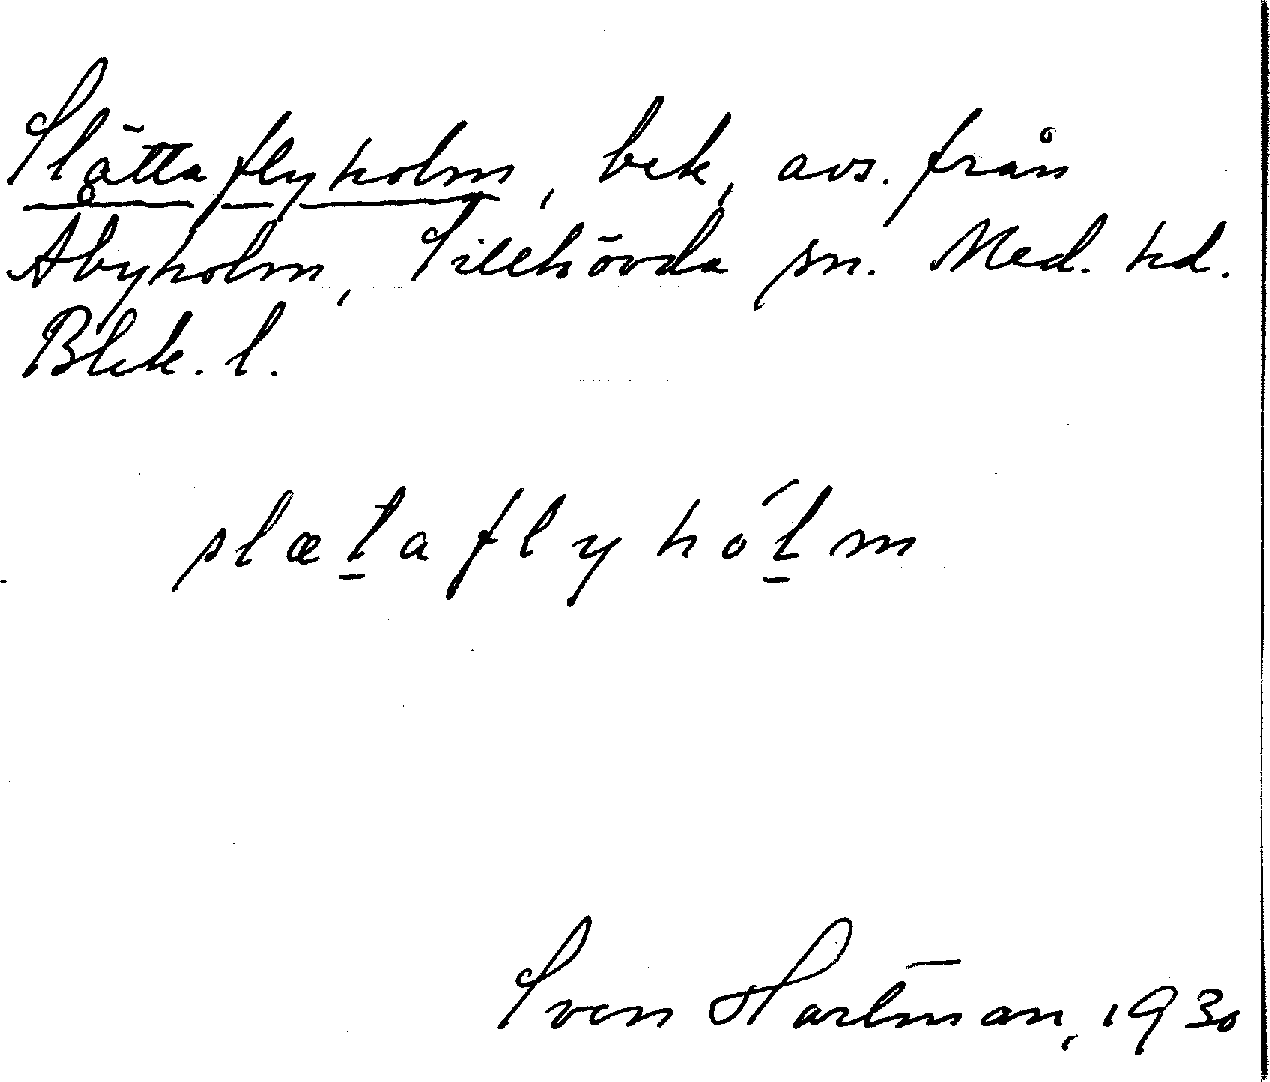 Slättaflyholm, bek, avs. från
Åbyholm, Sillhövda sn. Med. hd.
Blek. l.
slætaflyhólm
Sven Hartman, 1930